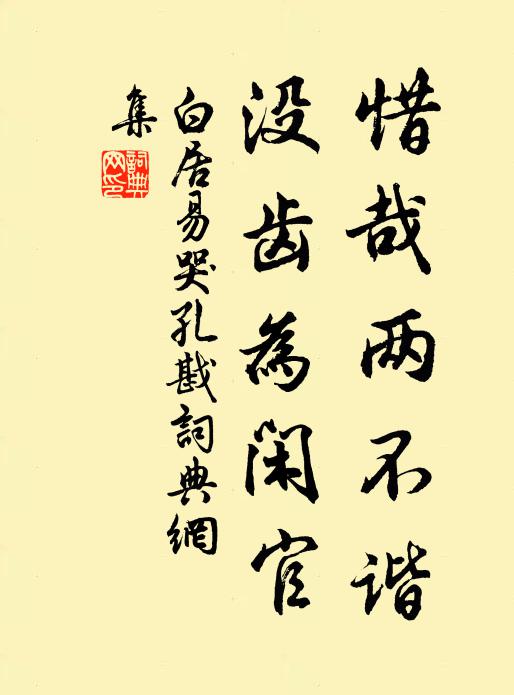 惜哉两不谐
没齿為闲官
白居易哭孔戡詞典網
集
詞典网印